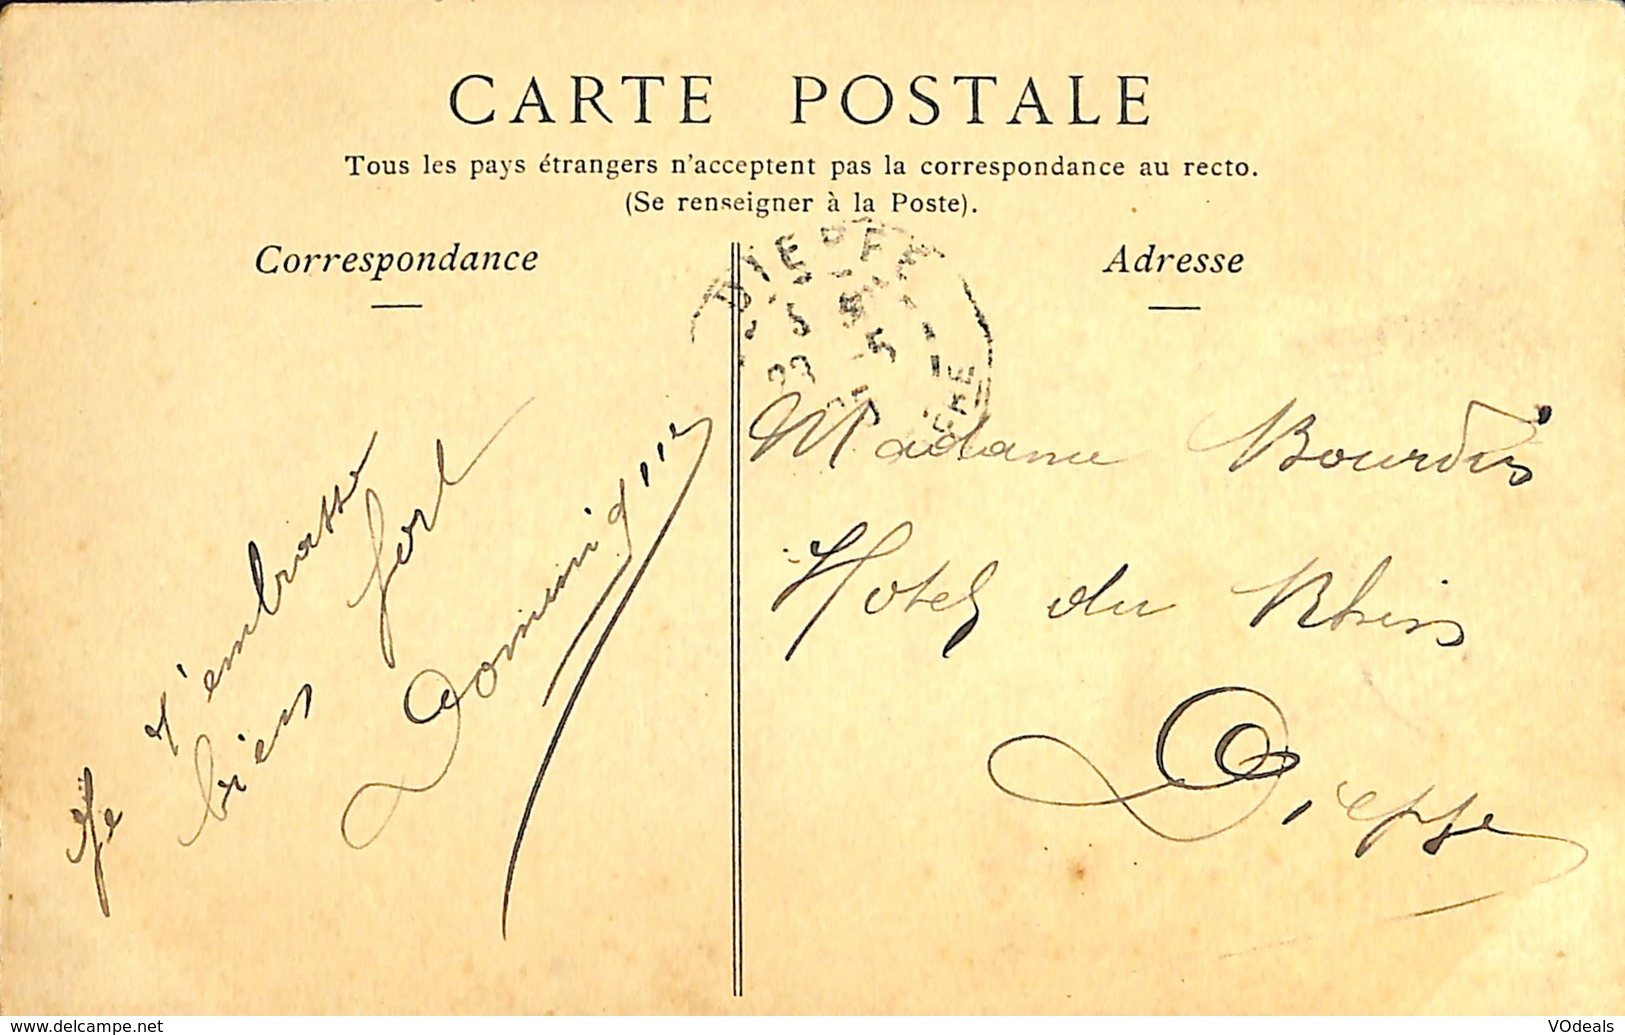 CARTE POSTALE
Tous les pays étrangers n'acceptent pas la correspondance au recto.
(Se renseigner à la Poste).
Correspondance
Adresse
DIEPPE
Je t'embrasse
bien fort
Dominique
Madame
Hotel du Rhin
Dieppe
www.delcampe.net
VOdeals